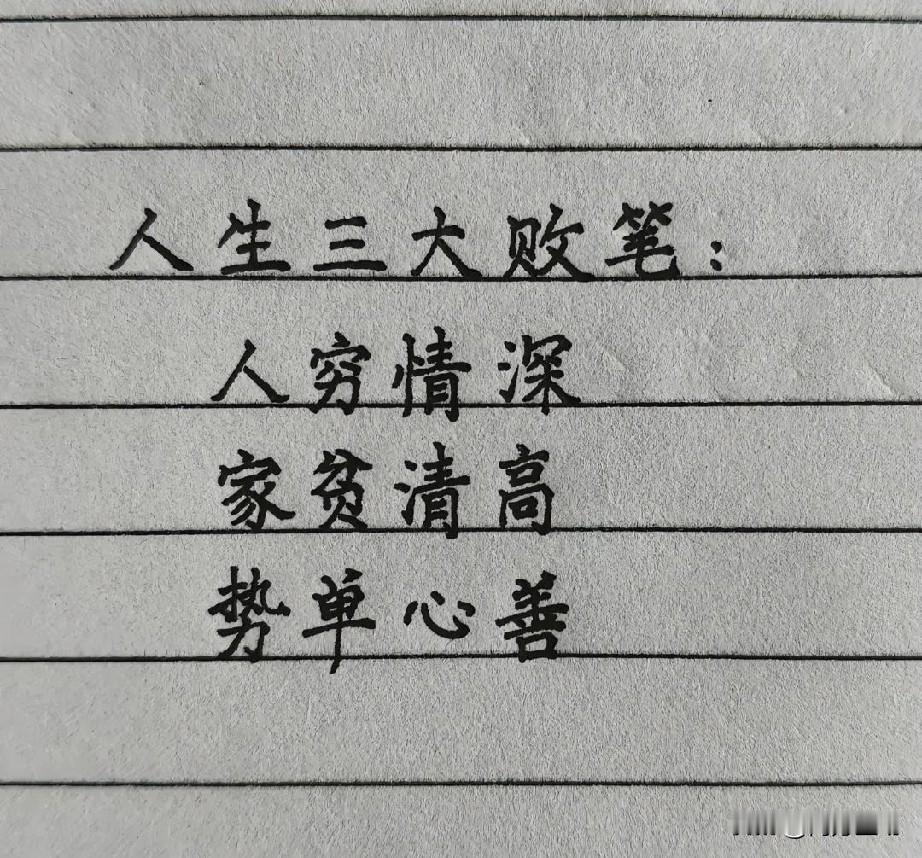 人生三大败笔：
人穷情深
家贫清高
势单心善